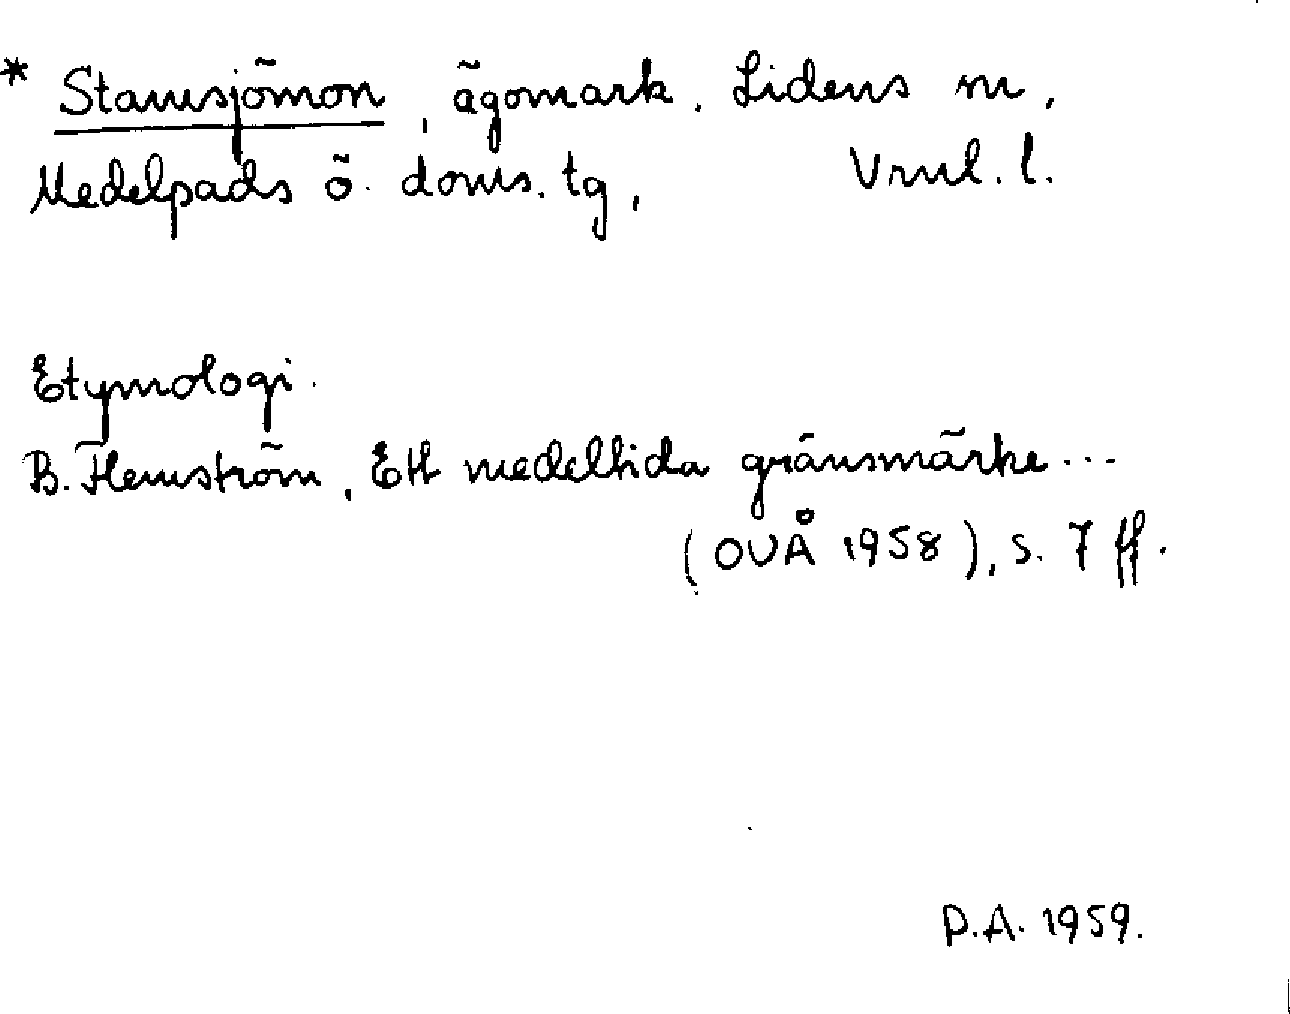 * Stamsjömon, ägomark. Lidens sn,
Medelpads ö. doms. tg, Vnrl. l.
Etymologi.
B. Flemström, Ett medeltida gränsmärke ...
(OVÅ 1958), s. 7 ff.
P.A. 1959.